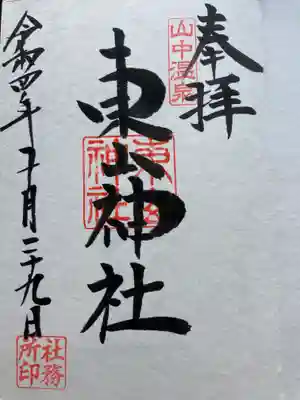 奉拝
山中温泉
東山神社
東山神社
令和四年五月二十九日
社務所印